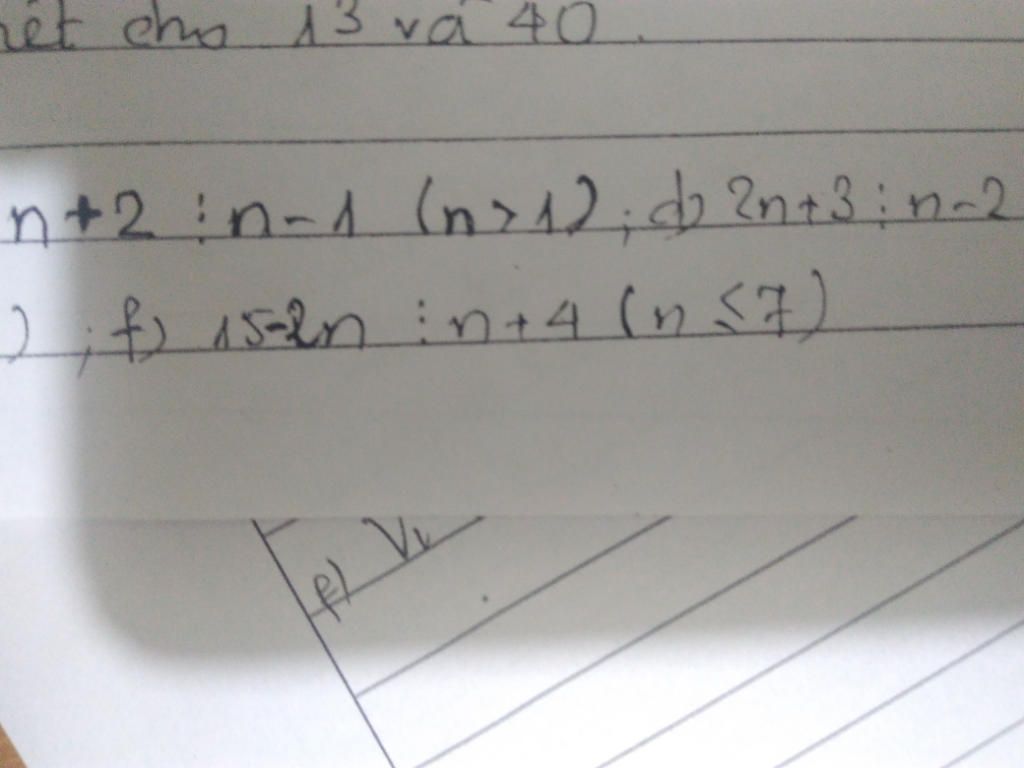 hết cho 13 và 40.
n+2 ⋮ n-1 (n>1); d) 2n+3 ⋮ n-2
) ; f) 15-2n ⋮ n+4 (n ≤ 7)
f) V